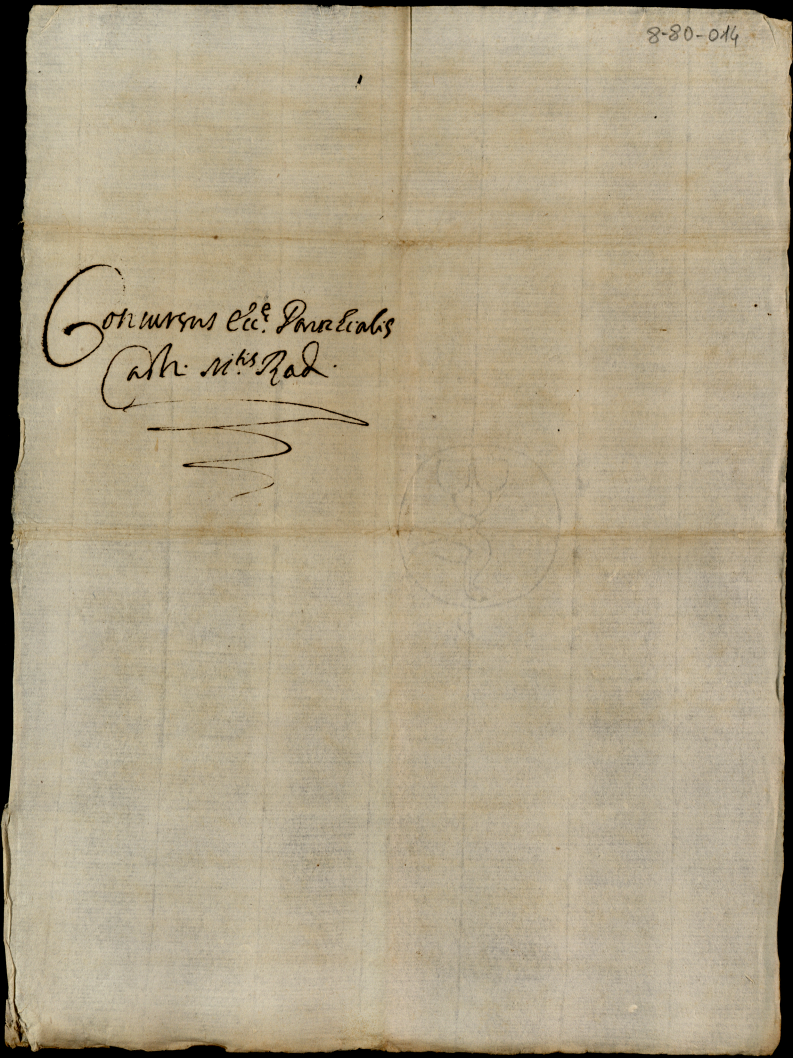 8-80-014
Concursus Ecc.e Parochialis
Castr. M.tis Rad.